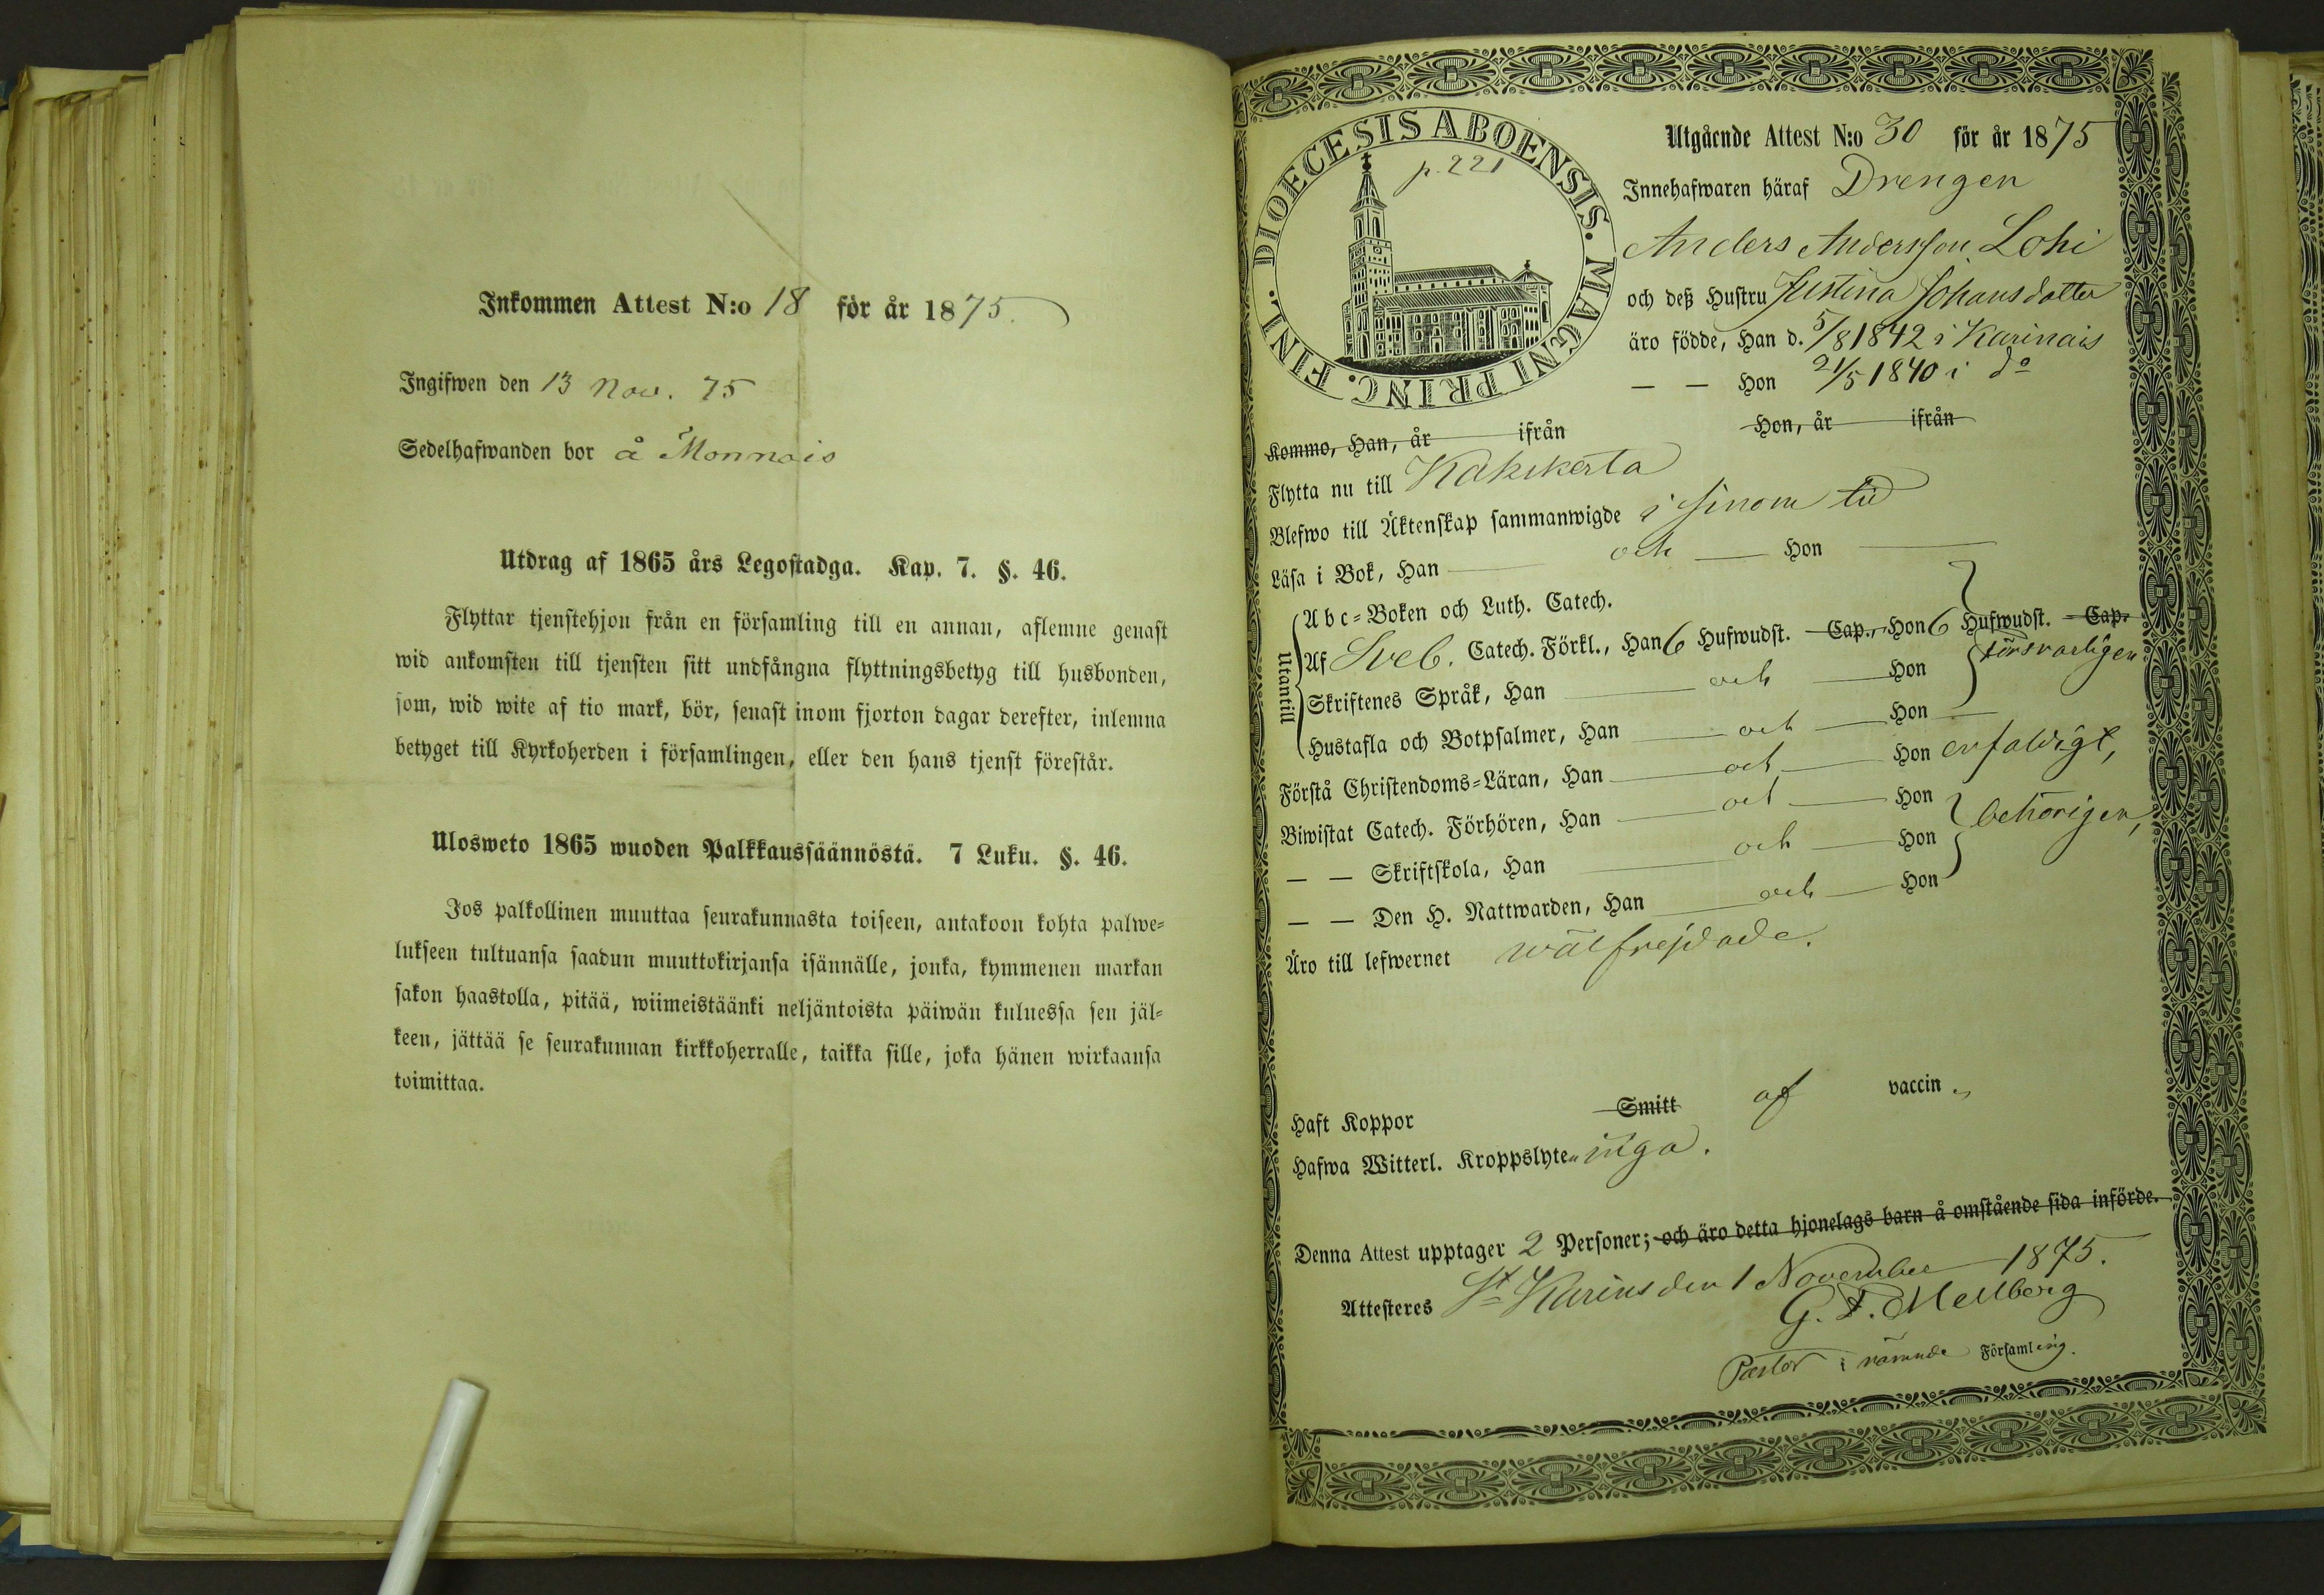 Inkommen Attest N:o 18 för år 1875.
Ingifwen den 13 Nov. 75
Sedelhafwanden bor å Monnois
Utdrag af 1865 års Legostadga. Kap. 7. §. 46.
Flyttar tjenstehjon från en församling till en annan, aflemne genast
wid ankomsten till tjensten sitt undfångna flyttningsbetyg till husbonden,
som, wid wite af tio mark, bör, senast inom fjorton dagar derefter, inlemna
betyget till Kyrkoherden i församlingen, eller den hans tjenst förestår.
Ulosweto 1865 wuoden Palkkaussäännöstä. 7 Luku. §. 46.
Jos palkollinen muuttaa seurakunnasta toiseen, antakoon kohta palwe=
lukseen tultuansa saadun muuttokirjansa isännälle, jonka, kymmenen markan
sakon haastolla, pitää, wiimeistäänki neljäntoista päiwän kuluessa sen jäl=
keen, jättää se seurakunnan kirkkoherralle, taikka sille, joka hänen wirkaansa
toimittaa.
DIOECESIS ABOENSIS. MAGNI PRINC. FINL.
p. 221
Utgående Attest N:o 30 för år 1875
Innehafwaren häraf Drengen
Anders Andersson Lohi
och deß Hustru Justina Johansdotter
äro födde, Han d. 5/8 1842 i Karinais
— — Hon 21/5 1840 i do
Kommo, Han, år ifrån Hon, år ifrån
Flytta nu till Kakskerta
Blefwo till Äktenskap sammanwigde i sinom tid
Läsa i Bok, Han — och — Hon —
Utantill
Abc=Boken och Luth. Catech.
Af Sveb. Catech. Förkl., Han 6 Hufwudst. Cap., Hon 6 Hufwudst. Cap.
försvarligen
Skriftenes Språk, Han — och — Hon
Hustafla och Botpsalmer, Han — och — Hon —
Förstå Christendoms=Läran, Han — och — Hon enfaldigt,
Biwistat Catech. Förhören, Han — och — Hon
behörigen,
— — Skriftskola, Han — och — Hon
— — Den H. Nattwarden, Han — och — Hon
Äro till lefwernet wälfrejdade.
Haft Koppor Smitt af vaccin.
Hafwa Witterl. Kroppslyten inga.
Denna Attest upptager 2 Personer; och äro detta hjonelags barn å omstående sida införde.
Attesteres St Karins den 1 November 1875.
G. F. Mellberg
Pastor i nämnde Församling.